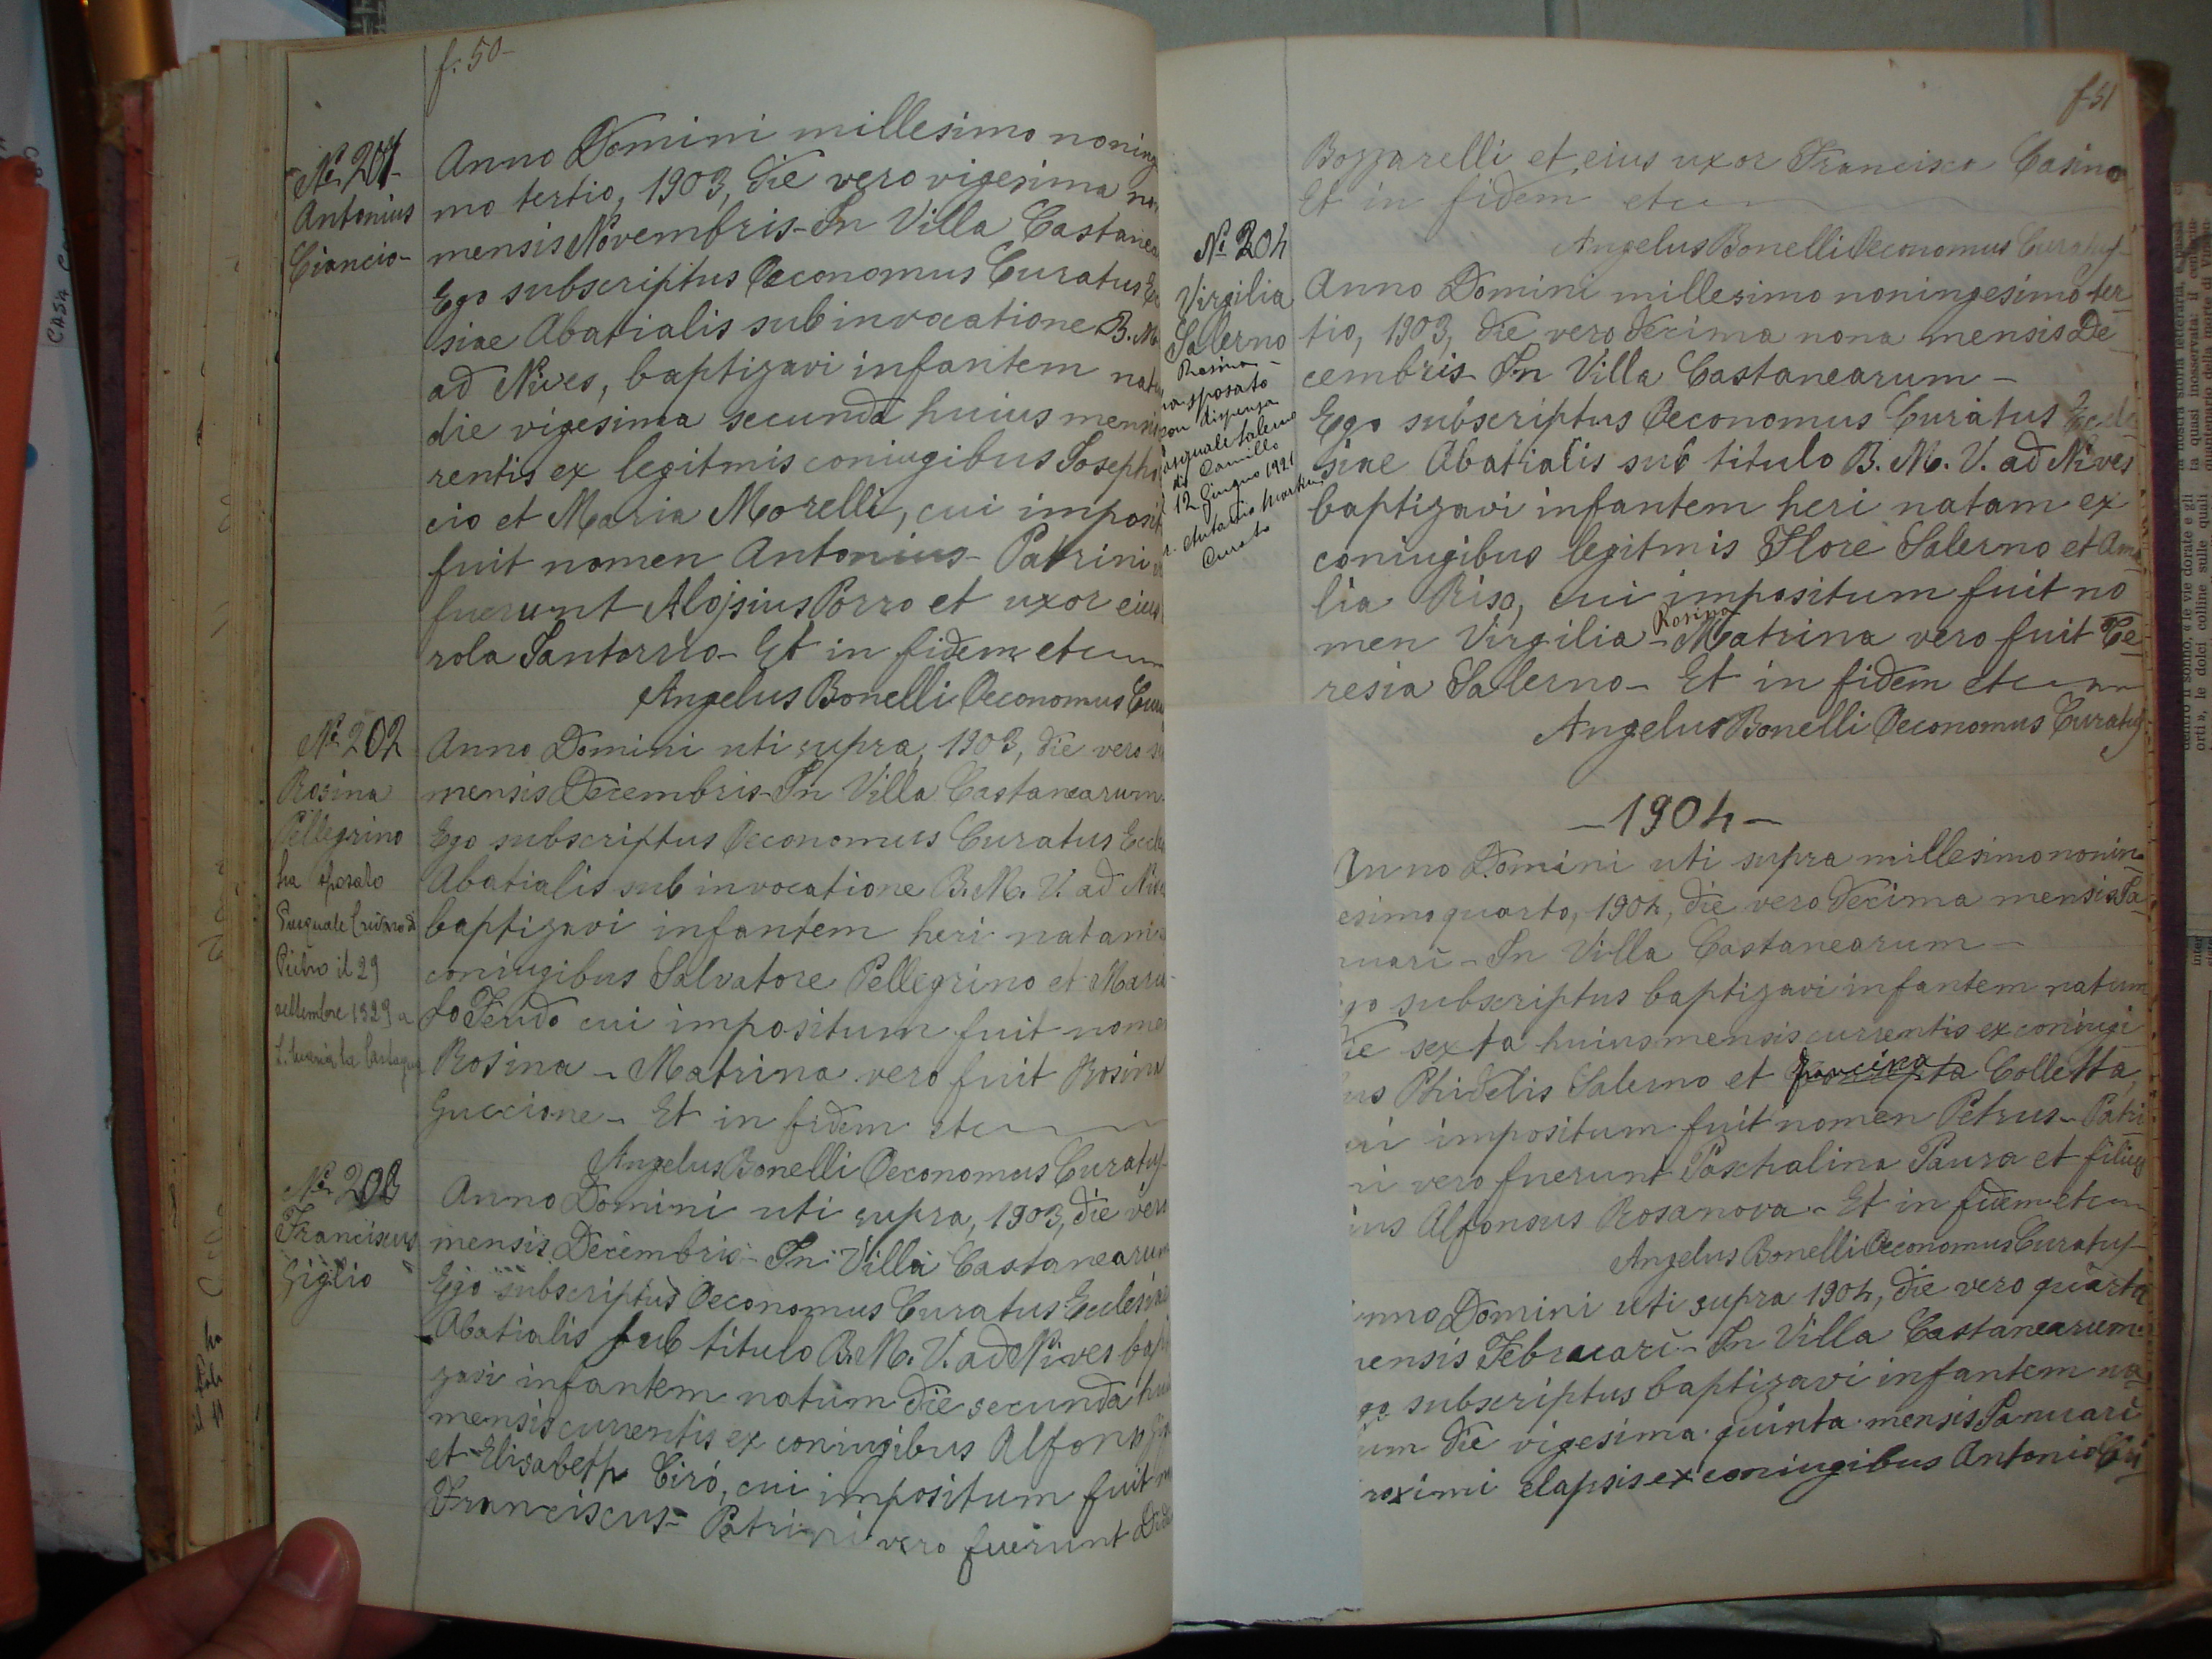 f. 50-
Nº 201-
Antonius
Ciancio-
Anno Domini millesimo noning
mo tertio, 1903, die vero vigesima no
mensis Novembris - In Villa Castanea
Ego subscriptus Oeconomus Curatus Ec
siae Abatialis sub invocatione B. M.
ad Nives, baptizavi infantem natu
die vigesima secunda huius mensi
rentis ex legitmis coniugibus Joseph
cio et Maria Morelli, cui imposit
fuit nomen Antonius - Patrini v
fuerunt Alojsius Porro et uxor eius
rola Santorvo - Et in fidem etc
Angelus Bonelli Oeconomus Cura
Nº 202
Rosina
Pellegrino
ha sposato
Pasquale
Pietro il 29
settembre 1929 a
S. Maria la Castagna
Anno Domini uti supra, 1903, die vero
mensis Decembris - In Villa Castanearum
Ego subscriptus Oeconomus Curatus Eccle
Abatialis sub invocatione B. M. V. ad Nive
baptizavi infantem heri natam
coniugibus Salvatore Pellegrino et Maria
Lo Feudo cui impositum fuit nomen
Rosina - Matrina vero fuit Rosina
Guccione - Et in fidem etc
Angelus Bonelli Oeconomus Curatus-
Nº 203
Franciscus
Giglio
Anno Domini uti supra, 1903, die vero
mensis Decembris - In Villa Castanearum
Ego subscriptus Oeconomus Curatus Eclesiae
Abatialis sub titulo B. M. V. ad Nives bap
zavi infantem natum die secunda hu
mensis currentis ex coniugibus Alfonso Gi
et Elisabeth Cirò, cui impositum fuit n
Franciscus - Patrini vero fuerunt
f 51
Bozzarelli et eius uxor Francisca Casino
Et in fidem etc
Angelus Bonelli Oeconomus Curatus-
Nº 204
Virgilia
Salerno
Rosina -
ha sposato
con dispensa
Pasquale Salerno
di Camillo
12 Giugno 1921
Antonio Martino
Curato
Anno Domini millesimo noningesimo ter-
tio, 1903, die vero decima nona mensis De-
cembris - In Villa Castanearum -
Ego subscriptus Oeconomus Curatus Eccle
siae Abatialis sub titulo B. M. V. ad Nives
baptizavi infantem heri natam ex
coniugibus legitmis Flore Salerno et Ama
lia Riso, cui impositum fuit no
Rosina
men Virgilia - Matrina vero fuit Te-
resia Salerno - Et in fidem etc
Angelus Bonelli Oeconomus Curatus
- 1904 -
Anno Domini uti supra millesimo nonin-
esimo quarto, 1904, die vero decima mensis Ja-
nuari - In Villa Castanearum -
go subscriptus baptizavi infantem natum
die sexta huius mensis currentis ex coniugi-
us Phidelis Salerno et Francisca Colletta,
ui impositum fuit nomen Petrus - Patri-
ni vero fuerunt Paschalina Paura et filius
ius Alfonsus Rosanova - Et in fidem etc
Angelus Bonelli Oeconomus Curatus-
nno Domini uti supra 1904, die vero quarta
mensis Februari - In Villa Castanearum
go subscriptus baptizavi infantem na-
um die vigesima quinta mensis Januari
roximi elapsis ex coniugibus Antonio